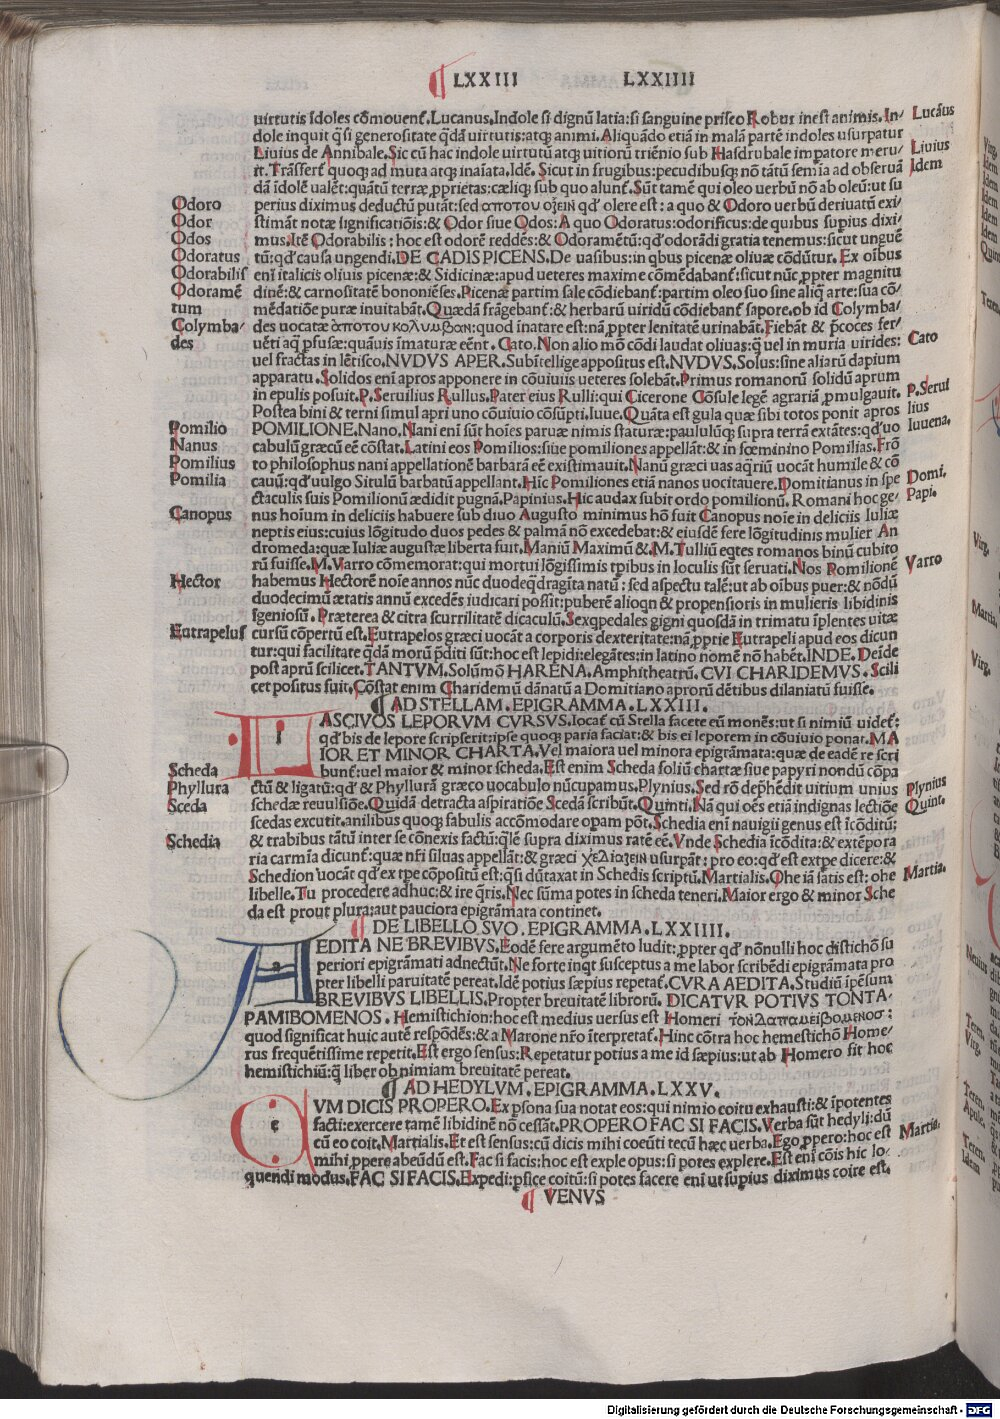 ¶ LXXIII LXXIIII
uirtutis īdoles cōmouent̄. Lucanus, Indole si dignū latia: si sanguine prisco Robur inest animis. In/ Lucāus
dole inquit q̄si generositate q̄dā uirtutis: atq; animi. Aliquādo etiā in malā partē indoles usurpatur
Liuius de Annibale. Sic cū hac indole uirtutū atq; uitiorū triēnio sub Hasdrubale impatore meru/ Liuius
it. Trāsfert̄ quoq; ad muta atq; inaīata. Idē. Sicut in frugibus: pecudibusq; nō tātū semīa ad obseruā Idem
dā īdolē ualēt: quātū terræ, pprietas: cæliq; sub quo alunt̄. Sūt tamē qui oleo uerbū nō ab oleū: ut su
Odoro perius diximus deductū putāt: sed αποτου οζειν qd' olere est: a quo & Odoro uerbū deriuatū exi/
Odor stimāt notæ significatiōis: & Odor siue Odos: A quo Odoratus: odorificus: de quibus supius dixi/
Odos mus. Itē Odorabilis: hoc est odorē reddēs: & Odoramētū: qd' odorādi gratia tenemus: sicut unguē
Odoratus tū: qd' causa ungendi. DE CADIS PICENS. De uasibus: in qbus picenæ oliuæ cōdūtur. Ex oībus
Odorabilis enī italicis oliuis picenæ: & Sidicinæ: apud ueteres maxime cōmēdabant̄: sicut nūc, ppter magnitu
Odoramē dinē: & carnositatē bononiēses. Picenæ partim sale cōdiebant̄: partim oleo suo sine aliq̄ arte: sua cō/
tum mēdatiōe puræ inuitabāt. Quædā frāgebant̄: & herbarū uiridū cōdiebant̄ sapore. ob id Colymba/
Colymba/ des uocatæ ἀποτου κολυμβαν: quod inatare est: nā, ppter lenitatē urinabāt. Fiebāt & p̄coces fer/
des uēti aq̄ pfusæ: quāuis īmaturæ eēnt. Cato. Non alio mō cōdi laudat oliuas: q̄ uel in muria uirides: Cato
uel fractas in lētisco. NVDVS APER. Subītellige appositus est. NVDVS. Solus: sine aliarū dapium
apparatu. Solidos enī apros apponere in cōuiuiis ueteres solebāt. Primus romanorū solidū aprum
in epulis posuit. P. Seruilius Rullus. Pater eius Rulli: qui Cicerone Cōsule legē agrariā, pmulgauit. P. Serui
Postea bini & terni simul apri uno cōuiuio cōsūpti. Iuue. Quāta est gula quæ sibi totos ponit apros lius
Pomilio POMILIONE. Nano. Nani enī sūt hoīes paruæ nimis staturæ: paululūq; supra terrā extātes: qd' uo Iuuena,
Nanus cabulū græcū eē cōstat. Latini eos Pomilios: siue pomiliones appellāt: & in fœminino Pomilias. Frō
Pomilius to philosophus nani appellationē barbarā eē existimauit. Nanū græci uas aq̄riū uocāt humile & cō
Pomilia cauū: qd' uulgo Situlū barbatū appellant. Hīc Pomiliones etiā nanos uocitauere. Domitianus in spe Domi,
ctaculis suis Pomilionū ædidit pugnā. Papinius. Hic audax subit ordo pomilionū. Romani hoc ge/ Papi.
Canopus nus hoīum in deliciis habuere sub diuo Augusto minimus hō fuit Canopus noīe in deliciis Iuliæ
neptis eius: cuius lōgitudo duos pedes & palmā nō excedebat: & eiusdē fere lōgitudinis mulier An
dromeda: quæ Iuliæ augustæ liberta fuit. Maniū Maximū &. M. Tulliū eq̄tes romanos binū cubito
rū fuisse. M. Varro cōmemorat: qui mortui lōgissimis tpibus in loculis sūt seruati. Nos Pomilionē Varro
Hector habemus Hectorē noīe annos nūc duodeq̄dragīta natū: sed aspectu talē: ut ab oībus puer: & nōdū
duodecimū ætatis annū excedēs iudicari possit: puberē alioqn & propensioris in mulieris libidinis
īgeniosū. Præterea & citra scurrilitatē dicaculū. Sexqpedales gigni quosdā in trimatu īplentes uitæ
Eutrapelus cursū cōpertū est. Eutrapelos græci uocāt a corporis dexteritate: nā, pprie Eutrapeli apud eos dicun
tur: qui facilitate q̄dā morū p̄diti sūt: hoc est lepidi: elegātes: in latino nomē nō habēt. INDE. Deīde
post aprū scilicet. TANTVM. Solūmō HARENA. Amphitheatrū. CVI CHARIDEMVS. Scili
cet positus fuit. Cōstat enim Charidemū dānatū a Domitiano aprorū dētibus dilaniatū fuisse.
¶ AD STELLAM. EPIGRAMMA. LXXIII.
LASCIVOS LEPORVM CVRSVS. Iocat̄ cū Stella facete eū monēs: ut si nimiū uidet̄:
qd' bis de lepore scripserit: ipse quoq; paria faciat: & bis ei leporem in cōuiuio ponat. MA
IOR ET MINOR CHARTA. Vel maiora uel minora epigrāmata: quæ de eadē re scri
Scheda bunt̄: uel maior & minor scheda. Est enim Scheda foliū chartæ siue papyri nondū cōpa
Phyllura ctū & ligatū: qd' & Phyllurā græco uocabulo nūcupamus. Plynius. Sed rō dep̄hēdit uitium unius Plynius
Sceda schedæ reuulsiōe. Quidā detracta aspiratiōe Scedā scribūt. Quinti. Nā qui oēs etiā indignas lectiōe Quint.
scedas excutit. anilibus quoq; fabulis accōmodare opam pōt. Schedia enī nauigii genus est īcōditū:
Schedia & trabibus tātū inter se cōnexis factū: q̄lē supra diximus ratē eē. Vnde Schedia īcōdita: & extēpora
ria carmīa dicunt̄: quæ nr̄i siluas appellāt: & græci χεδιαζειν usurpāt: pro eo: qd' est extpe dicere: &
Schedion uocāt qd' ex tpe cōpositū est: q̄si dūtaxat in Schedis scriptū. Martialis. Ohe iā satis est: ohe Martia.
libelle. Tu procedere adhuc: & ire q̄ris. Nec sūma potes in scheda teneri. Maior ergo & minor Sche
da est prout plura: aut pauciora epigrāmata continet.
¶ DE LIBELLO SVO. EPIGRAMMA. LXXIIII.
AEDITA NE BREVIBVS. Eodē fere argumēto ludit: ppter qd' nōnulli hoc distichō su
periori epigrāmati adnectūt. Ne forte inqt susceptus a me labor scribēdi epigrāmata pro
pter libelli paruitatē pereat. Idē potius sæpius repetat̄. CVRA AEDITA. Studiū īpēsum
BREVIBVS LIBELLIS. Propter breuitatē librorū. DICATVR POTIVS TONTA-
PAMIBOMENOS. Hemistichion: hoc est medius uersus est Homeri τονδαπαμειβομενοσ:
quod significat huic autē respōdēs: & a Marone nr̄o īterpretat̄. Hinc cōtra hoc hemestichō Home/
rus frequētissime repetit. Est ergo sensus: Repetatur potius a me id sæpius: ut ab Homero fit hoc
hemistichiū: q̄ liber ob nimiam breuitatē pereat.
¶ AD HEDYLVM. EPIGRAMMA. LXXV.
CVM DICIS PROPERO. Ex psona sua notat eos: qui nimio coitu exhausti: & īpotentes
facti: exercere tamē libidinē nō cessāt. PROPERO FAC SI FACIS. Verba sūt hedyli: dū
cū eo coit. Martialis. Et est sensus: cū dicis mihi coeūti tecū hæc uerba. Ego, ppero: hoc est Martia.
mihi, ppere abeūdū est. Fac si facis: hoc est exple opus: si potes explere. Est enī cōis hic lo/
quendi modus. FAC SI FACIS. Expedi: pfice coitū: si potes facere enī ut supius diximus coire est.
¶ VENVS
Digitalisierung gefördert durch die Deutsche Forschungsgemeinschaft - DFG